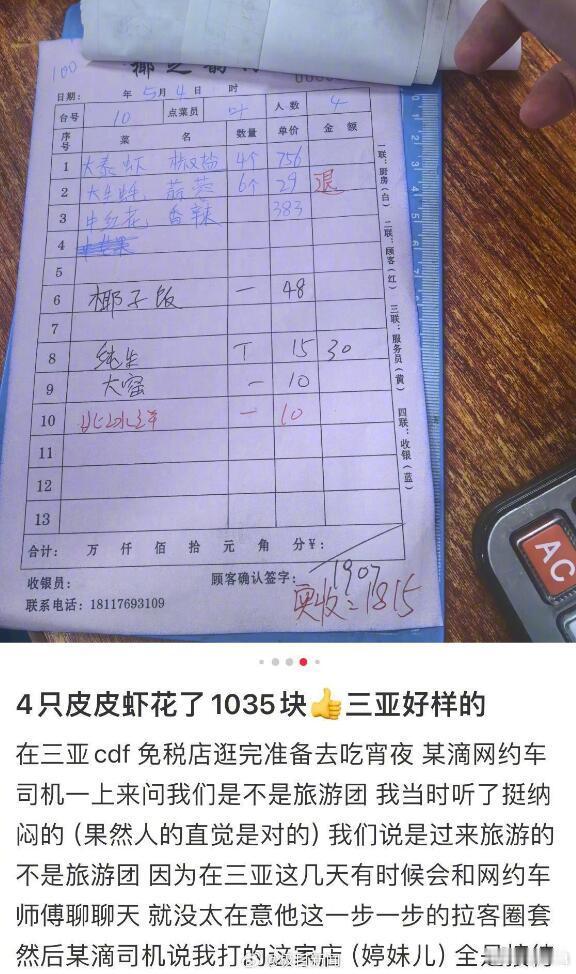 100
日期： 年 5月 4日 时
台号 10 点菜员 叶 人数 4
序号 菜名 数量 单价 金额
1 大泰虾 椒盐 4个 756
2 大生蚝 蒜蓉 6个 29 退
3 香辣 383
4
5
6 椰子饭 一 48
7
8 纯生 T 15 30
9 大窑 一 10
10 一 10
11
12
13
合计： 万 仟 佰 拾 元 角 分¥：
1907
收银员： 顾客确认签字：
实收：1815
联系电话：18117693109
一联：厨房（白） 二联：顾客（红） 三联：服务员（黄） 四联：收银（蓝）
AC
4只皮皮虾花了1035块👍三亚好样的
在三亚cdf 免税店逛完准备去吃宵夜 某滴网约车
司机一上来问我们是不是旅游团 我当时听了挺纳
闷的（果然人的直觉是对的）我们说是过来旅游的
不是旅游团 因为在三亚这几天有时候会和网约车
师傅聊聊天 就没太在意他这一步一步的拉客圈套
然后某滴司机说我打的这家店（婷妹儿）全是